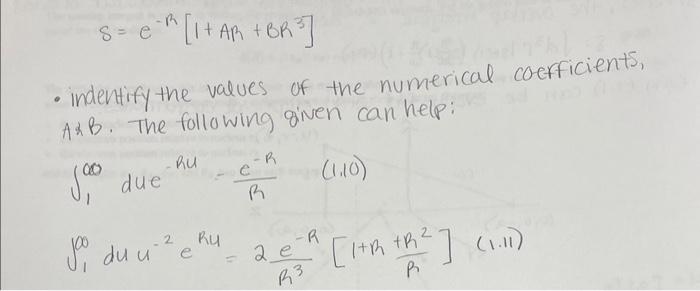 S = e^-R [1 + AR + BR^3]
• indentify the values of the numerical coefficients,
A & B. The following given can help:
∫_1^∞ du e^-Ru = e^-R / R (1.10)
∫_1^∞ du u^-2 e^Ru = 2 e^-R / R^3 [1 + R + R^2 / R] (1.11)